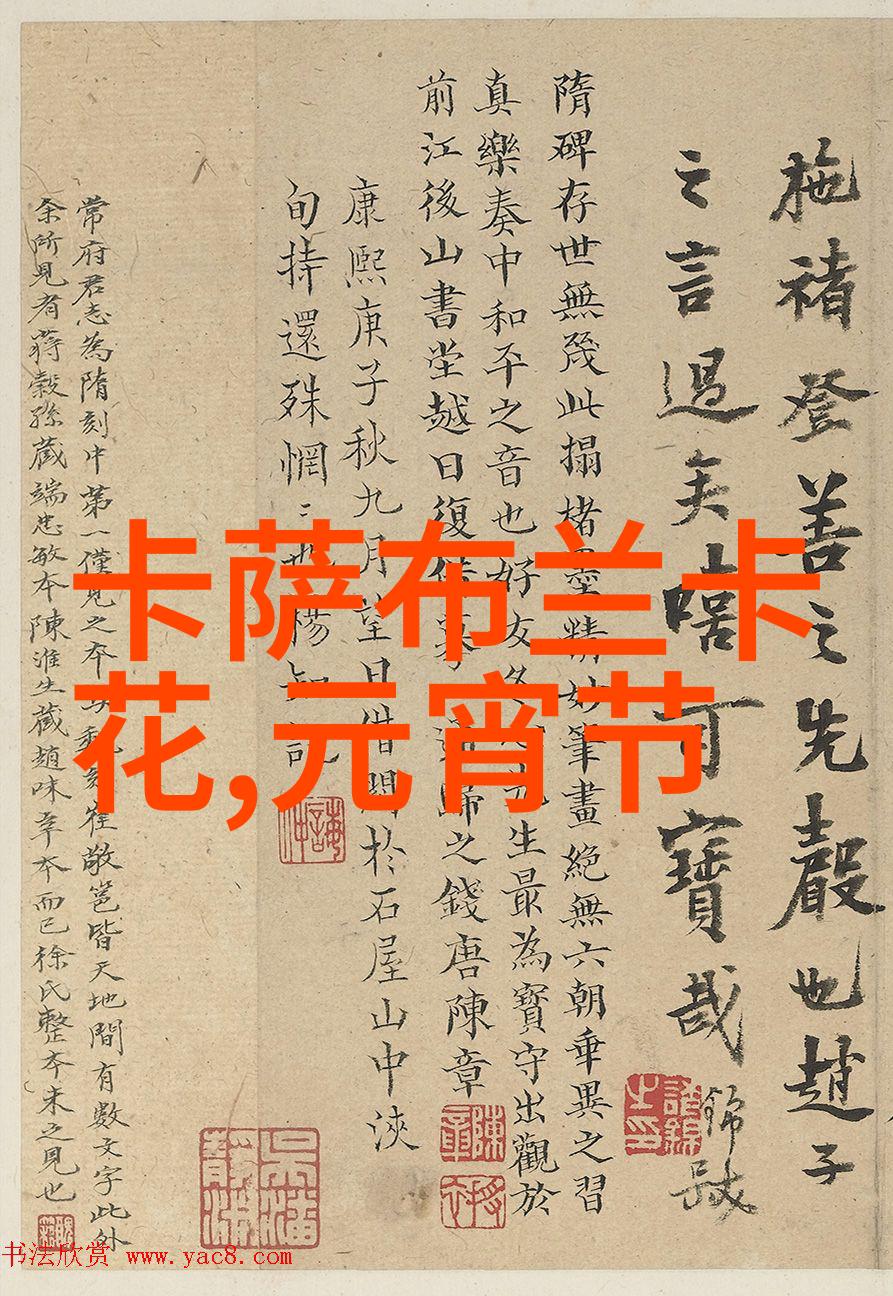 施褚登善之先聲也趙子
之言過矣嘻可寶哉
錦
隋碑存世無幾此搨楮墨精妙筆畫絕無六朝乖異之習
真樂奏中和平之音也好友
生最為寶守出觀於
前江後山書堂越日復
歸之錢唐陳章
康熙庚子秋九月望日借閱於石屋山中浹
旬持還殊惘〻也楊知記
常府君志為隋刻中第一僅見之本与
刻崔敬邕皆天地間有數文字此外
余所見有蔣穀孫藏端忠敏本陳淮生藏趙味辛本而已徐氏整本未之見也
卡萨布兰卡
花,元宵节
书法欣赏 www.yac8.com